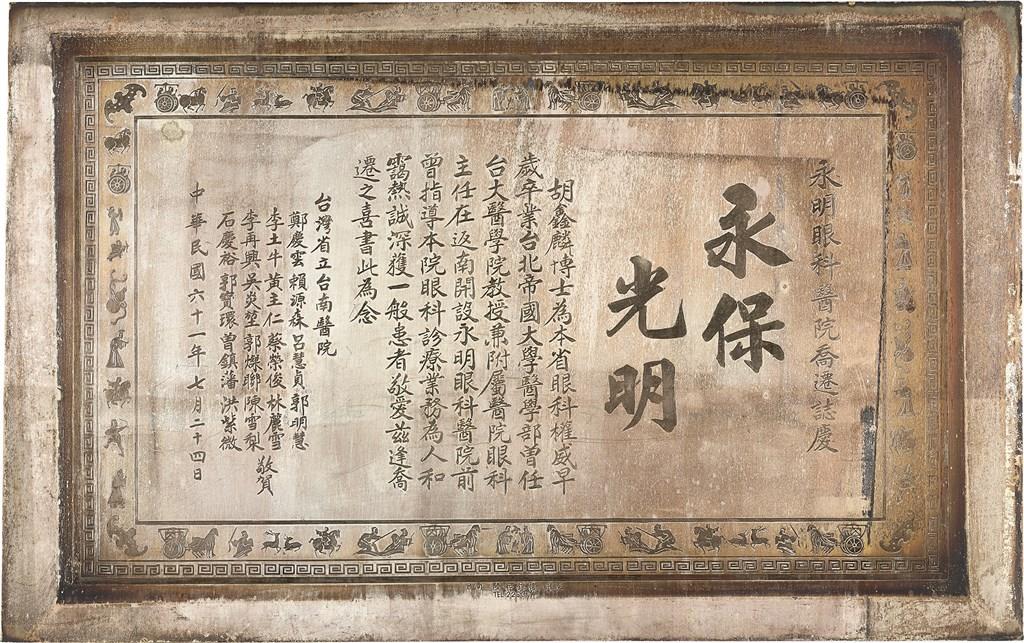 永明眼科醫院喬遷誌慶
永保
光明
胡鑫麟博士為本省眼科權威早
歲卒業台北帝國大學醫學部曾任
台大醫學院教授兼附屬醫院眼科
主任在返南開設永明眼科醫院前
曾指導本院眼科診療業務為人和
靄熱誠深獲一般患者敬愛茲逢喬
遷之喜書此為念
台灣省立台南醫院
鄭慶雲 賴源森 呂慧貞 郭明慧
李土牛 黃主仁 蔡榮俊 林麗雪
李再興 吳炎堃 郭燦聯 陳雪梨
石慶裕 郭寶環 曾鎮藩 洪紫微
敬賀
中華民國六十一年七月二十四日